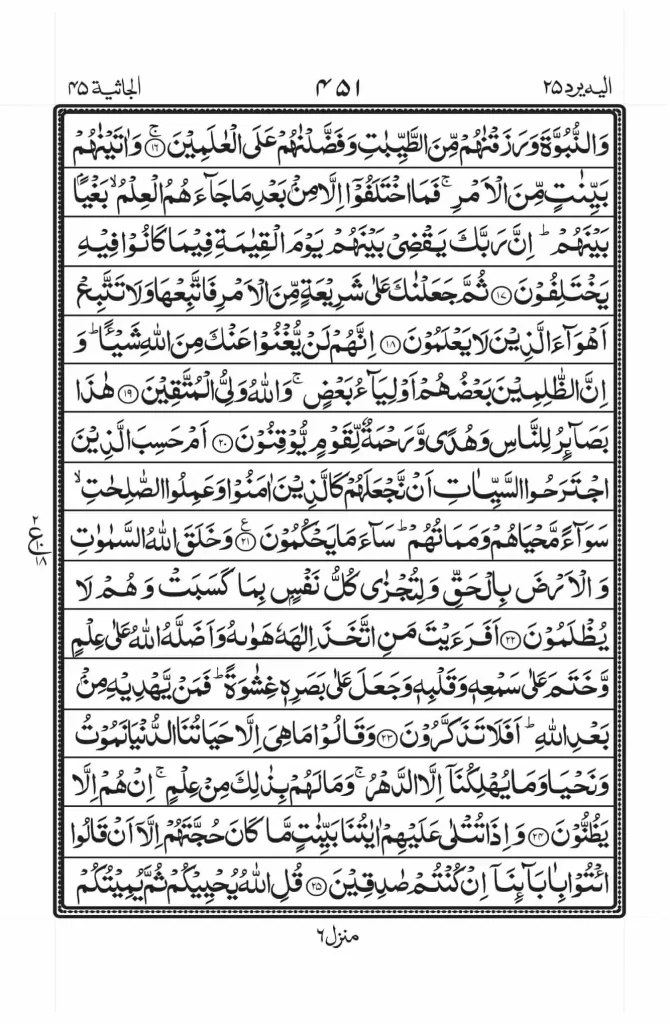 الیه یرد ۲۵ ۴۵۱ الجاثیة ۴۵
وَالنُّبُوَّةَ وَرَزَقْنٰهُمْ مِّنَ الطَّيِّبٰتِ وَفَضَّلْنٰهُمْ عَلَى الْعٰلَمِيْنَ ۚ‏﴿۱۶﴾ وَاٰتَيْنٰهُمْ
بَيِّنٰتٍ مِّنَ الْاَمْرِ ۚ فَمَا اخْتَلَفُوْۤا اِلَّا مِنْۢ بَعْدِ مَا جَآءَهُمُ الْعِلْمُ ۙ بَغْيًۢا
بَيْنَهُمْ ؕ اِنَّ رَبَّكَ يَقْضِيْ بَيْنَهُمْ يَوْمَ الْقِيٰمَةِ فِيْمَا كَانُوْا فِيْهِ
يَخْتَلِفُوْنَ ﴿۱۷﴾ ثُمَّ جَعَلْنٰكَ عَلٰى شَرِيْعَةٍ مِّنَ الْاَمْرِ فَاتَّبِعْهَا وَلَا تَتَّبِعْ
اَهْوَآءَ الَّذِيْنَ لَا يَعْلَمُوْنَ ﴿۱۸﴾ اِنَّهُمْ لَنْ يُّغْنُوْا عَنْكَ مِنَ اللّٰهِ شَيْـًٔا ؕ وَ
اِنَّ الظّٰلِمِيْنَ بَعْضُهُمْ اَوْلِيَآءُ بَعْضٍ ۚ وَاللّٰهُ وَلِيُّ الْمُتَّقِيْنَ ﴿۱۹﴾ هٰذَا
بَصَآئِرُ لِلنَّاسِ وَهُدًى وَّرَحْمَةٌ لِّقَوْمٍ يُّوْقِنُوْنَ ﴿۲۰﴾ اَمْ حَسِبَ الَّذِيْنَ
اجْتَرَحُوا السَّيِّاٰتِ اَنْ نَّجْعَلَهُمْ كَالَّذِيْنَ اٰمَنُوْا وَعَمِلُوا الصّٰلِحٰتِ ۙ
سَوَآءً مَّحْيَاهُمْ وَمَمَاتُهُمْ ؕ سَآءَ مَا يَحْكُمُوْنَ ﴿۲۱﴾ ع وَخَلَقَ اللّٰهُ السَّمٰوٰتِ
ع ۲ ۱۰ ۱۸
وَالْاَرْضَ بِالْحَقِّ وَلِتُجْزٰى كُلُّ نَفْسٍۢ بِمَا كَسَبَتْ وَهُمْ لَا
يُظْلَمُوْنَ ﴿۲۲﴾ اَفَرَءَيْتَ مَنِ اتَّخَذَ اِلٰهَهٗ هَوٰىهُ وَاَضَلَّهُ اللّٰهُ عَلٰى عِلْمٍ
وَّخَتَمَ عَلٰى سَمْعِهٖ وَقَلْبِهٖ وَجَعَلَ عَلٰى بَصَرِهٖ غِشٰوَةً ؕ فَمَنْ يَّهْدِيْهِ مِنْۢ
بَعْدِ اللّٰهِ ؕ اَفَلَا تَذَكَّرُوْنَ ﴿۲۳﴾ وَقَالُوْا مَا هِيَ اِلَّا حَيَاتُنَا الدُّنْيَا نَمُوْتُ
وَنَحْيَا وَمَا يُهْلِكُنَاۤ اِلَّا الدَّهْرُ ۚ وَمَا لَهُمْ بِذٰلِكَ مِنْ عِلْمٍ ۚ اِنْ هُمْ اِلَّا
يَظُنُّوْنَ ﴿۲۴﴾ وَاِذَا تُتْلٰى عَلَيْهِمْ اٰيٰتُنَا بَيِّنٰتٍ مَّا كَانَ حُجَّتَهُمْ اِلَّاۤ اَنْ قَالُوا
ائْتُوْا بِاٰبَآئِنَاۤ اِنْ كُنْتُمْ صٰدِقِيْنَ ﴿۲۵﴾ قُلِ اللّٰهُ يُحْيِيْكُمْ ثُمَّ يُمِيْتُكُمْ
منزل ۶